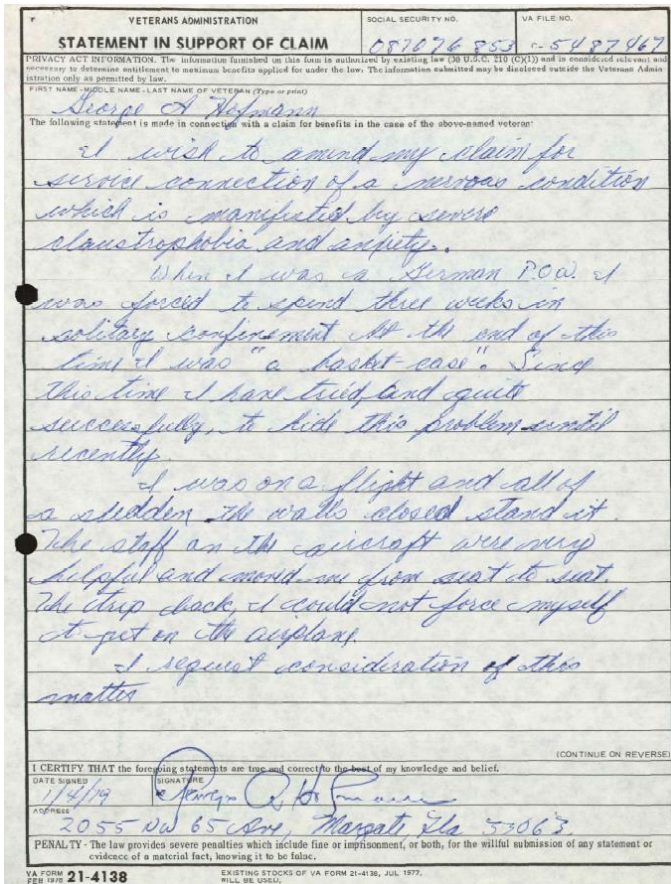 VETERANS ADMINISTRATION
STATEMENT IN SUPPORT OF CLAIM
SOCIAL SECURITY NO.
087076853
VA FILE NO.
C-5487467
PRIVACY ACT INFORMATION. The information furnished on this form is authorized by existing law (38 U.S.C. 210 (C)(1)) and is considered relevant and
necessary to determine entitlement to maximum benefits applied for under the law. The information submitted may be disclosed outside the Veterans Admin-
istration only as permitted by law.
FIRST NAME - MIDDLE NAME - LAST NAME OF VETERAN (Type or print)
George A Hofmann
The following statement is made in connection with a claim for benefits in the case of the above-named veteran:
I wish to amend my claim for
service connection of a nervous condition
which is manifisted by severe
claustrophobia and anxiety.
When I was a German P.O.W. I
was forced to spend three weeks in
solitary confinement At the end of this
time I was "a basket-case". Since
this time I have tried, and quite
successfully, to hide this problem until
recently.
I was on a flight and all of
a sudden the walls closed stand it.
The staff on the aircraft were very
helpful and moved me from seat to seat.
The trip back, I could not force myself
to get on the airplane.
I request consideration of this
matter
(CONTINUE ON REVERSE)
I CERTIFY THAT the foregoing statements are true and correct to the best of my knowledge and belief.
DATE SIGNED
1/4/79
SIGNATURE
ADDRESS
2055 NW 65 Ave, Margate Fla 33063
PENALTY - The law provides severe penalties which include fine or imprisonment, or both, for the willful submission of any statement or
evidence of a material fact, knowing it to be false.
VA FORM
FEB 1978 21-4138
EXISTING STOCKS OF VA FORM 21-4138, JUL 1977,
WILL BE USED.